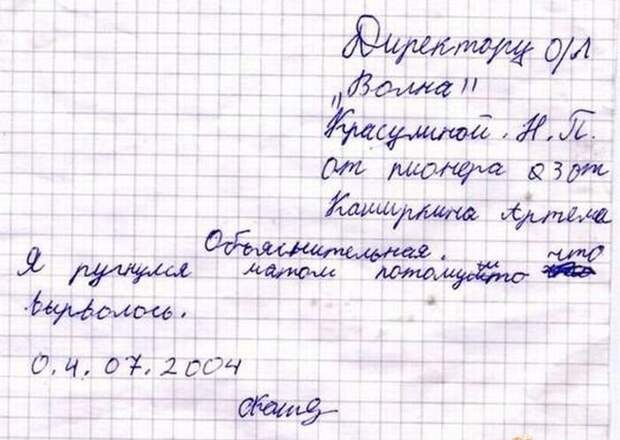 Директору О/Л
"Волна"
Красулиной. Н.П.
от пионера 23 от
Каширкина Артема
Объяснительная.
Я ругнулся матом потому что
вырволось.
04.07.2004